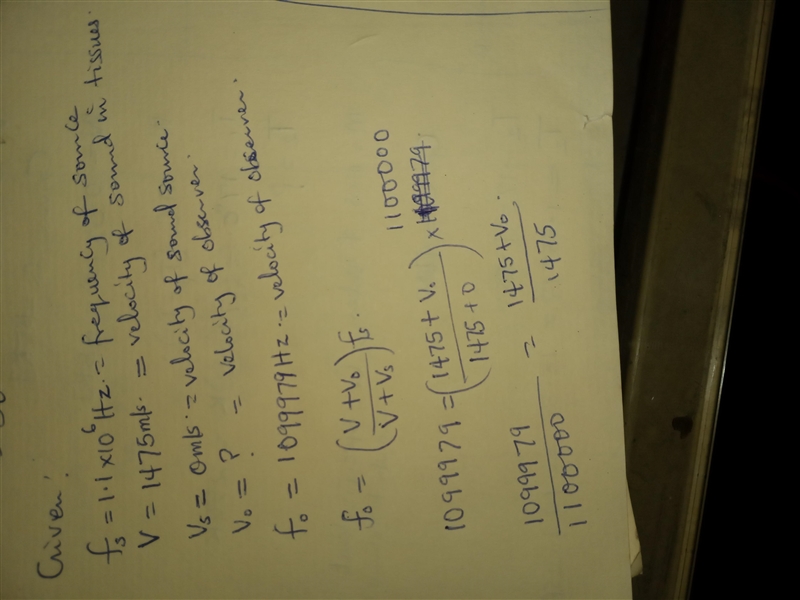 Given:
fs = 1.1 x 10^6 Hz. = frequency of source
V = 1475m/s. = velocity of sound in tissues.
Vs = 0m/s. = velocity of sound source.
Vo = ? = velocity of observer.
fo = 1099979Hz. = velocity of observer.
fo = (V + Vo / V + Vs) fs.
1100000
1099979 = (1475 + Vo / 1475 + 0) x
1099979 / 1100000 = 1475 + Vo. / 1475